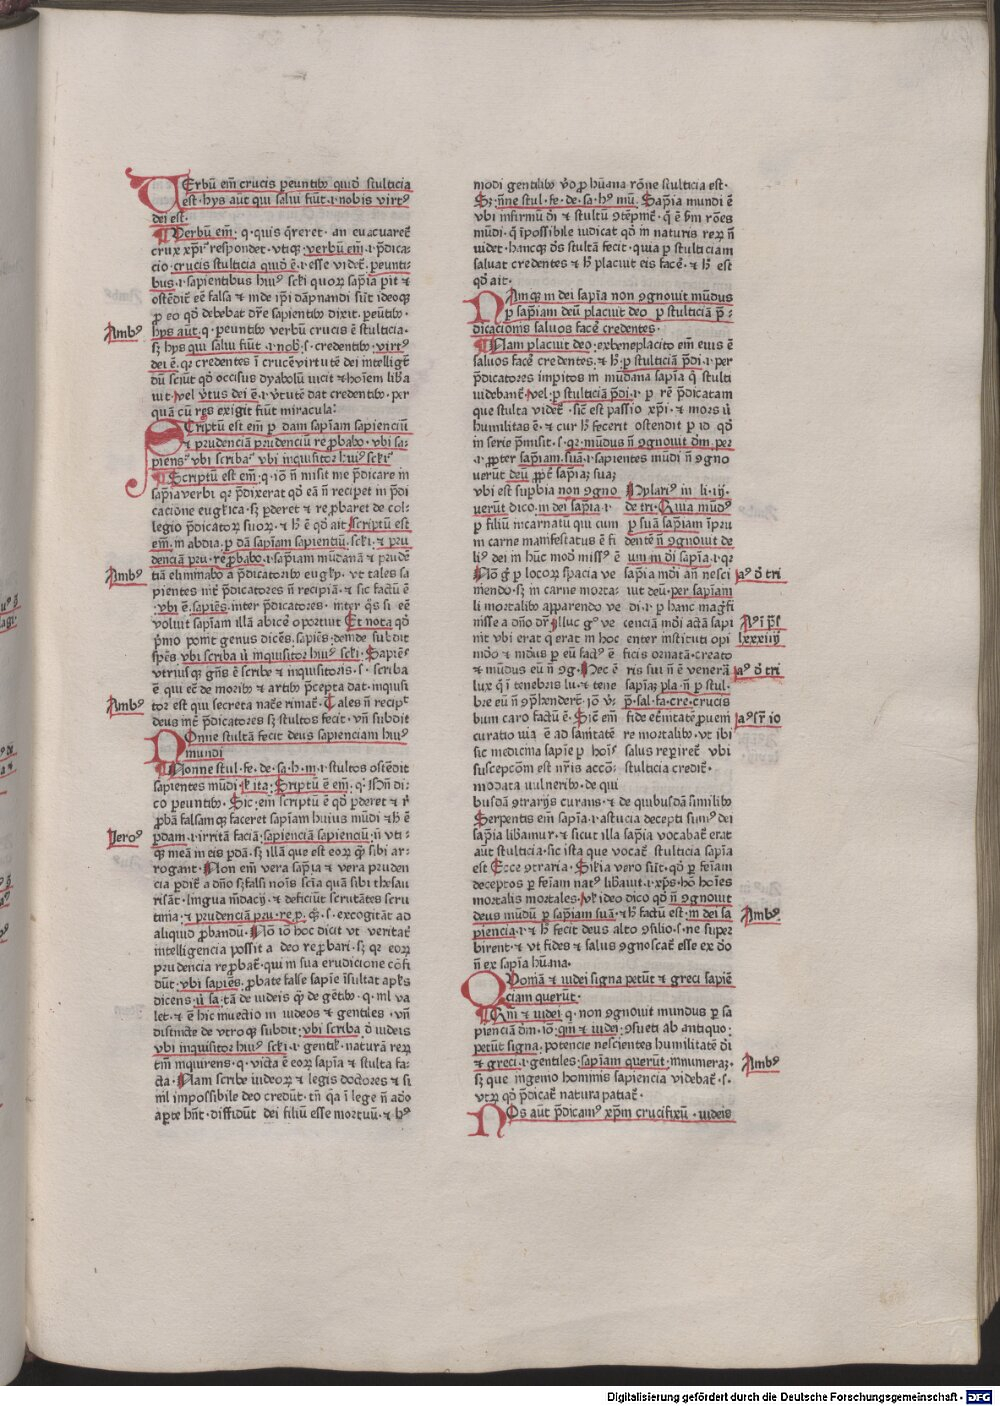 VErbū em̄ crucis peuntibꝰ quidē stulticia
est· hys aūt qui salui fiūt·i·nobis virtꝰ
dei est·
Verbū em̄· q· quis q̄reret· an euacuaret᷑
crux xp̄i· respondet· vtiqꝫ ·verbū em̄·i·p̄dica
cio· crucis stulticia quidē ē·i·esse videt᷑· peunti
bus·i·sapientibus huiꝰ sclī quoꝝ sapīa pit ⁊
ostēdit᷑ eē falsa ⁊ inde ip̄i dāpnandi sūt ideoqꝫ
ꝓ eo qd̄ debebat dr̄e sapientibꝰ dixit· peūtibꝰ·
Ambꝰ
hys aūt· q· peuntibꝰ verbū crucis ē stulticia·
sꝫ hys qui salui fiūt·i·nob̄·s·credentibꝰ·virtꝰ
dei ē· qꝛ credentes ī crucē virtutē dei intelligt᷑
dū sciūt qd̄ occisus dyabolū uicit ⁊ hoīem libīa
uit· vel v̄tus dei ē·i·v̄tutē dat credentibꝰ· per
quā cū res exigit fiūt miracula:
SCriptū est em̄ p dam sapīam sapienciū
⁊ prudenciā prudenciū reprobabo· vbi sa
piens· vbi scriba· vbi inquisitor huiꝰ sclī
Scriptū est em̄· q· iō n̄ misit me p̄dicare in
sapīa verbi qꝛ p̄dixerat qd̄ eā n̄ recipet in p̄di
cacione euglica· sꝫ pderet ⁊ reꝓbaret de col
legio p̄dicatoꝝ suoꝝ· ⁊ h̄ ē qd̄ ait· scriptū est
em̄· in abdia· p dā sapīam sapientiū· sclī· ⁊ pru
denciā pru· reꝓbabo·i·sapīam mūdanā ⁊ prudē
Ambꝰ
tiā eliminabo a p̄dicatoribꝰ euglij· vt tales sa
pientes int᷑ p̄dicatores n̄ recipiā· ⁊ sic factū ē
·vbi ē· sapiēs· inter p̄dicatores· inter q̄s si eē
voluit sapīam illā abicē oportuit· Et nota qd̄
p̄mo ponit genus dicēs· sapiēs· deinde subdit
sp̄ēs· vbi scriba ū inquisitor huiꝰ sclī· Sapiēs
vtriusqꝫ gn̄s ē scribe ⁊ inquisitoris· s· scriba
ē qui eē de moribꝰ ⁊ artibꝰ p̄cepta dat· inquisi
Ambꝰ
tor est qui secreta nat̄e rimat᷑· Tales n̄ recipit᷑
deus int᷑ p̄dicatores sꝫ stultos fecit· vn̄ subdit
NOnne stultā fecit deus sapienciam huiꝰ
mundi
Nonne stul· fe· de· sa· h· m·i·stultos ostēdit
sapientes mūdi· ⁊ ita· Scriptū ē em̄· q· ⁊c̄ di
co peuntibꝰ· Sic em̄ scriptū ē qd̄ pderet ⁊ r̄
ꝓbā falsamqꝫ faceret sapīam huius mūdi ⁊ h̄ ē
Jeroꝰ
pdam·i·irritā faciā· sapienciā sapienciū· ū vti
qꝫ meā in eis pdā· sꝫ illā que est eoꝝ qꝫ sibi ar
rogant· Non em̄ vera sapīa ⁊ vera pruden
cia pdit᷑ a dn̄o sꝫ falsi noīs scīa quā sibi thesau
risāt· lingua m̄dacij· ⁊ deficiūt scrutātes scru
tinia· ⁊ prudenciā pru· re ꝓ· qꝫ·s·excogitāt ad
aliquid ꝓbandū· Nō iō hoc dicit vt veritat᷑
intelligencia possit a deo reꝓbari· sꝫ qꝛ eoꝝ
prudencia reꝓbat᷑· qui in sua erudicione cōfi
dūt· vbi sapiēs· ꝓbate false sapīe īsultat apl̄s
dicens· ū sa· tā de iudeis qꝫ de gētibꝰ· q· ml̄ va
let· ⁊ ē hic inuectio in iudeos ⁊ gentiles· vn̄
distincte de vtroqꝫ subdit· vbi scriba· d̄ iudeis
vbi inquisitor huiꝰ sclī·i·gentil᷑· naturā reꝝ
tm̄ inquirens· q· victa ē eoꝝ sapīa ⁊ stulta fa
cta· Nam scribe iudeoꝝ ⁊ legis doctores ⁊ si
mīl impossibile deo credūt· tn̄ qͣ ī lege n̄ ado
aperte hn̄t· diffidūt dei filiū esse mortuū· ⁊ hꝰ
modi gentilibꝰ v̄o ꝓ hūana rōne stulticia est·
Sꝫ· n̄ne stul· fe· de· sa· hꝰ mū· Sapīa mundi ē
vbi infirmū dī ⁊ stultū ꝯtēpnit᷑· q̄ ē bm̄ rōes
mūdi· q̄ īpossibile iudicat qd̄ in naturis reꝝ n̄
uidet· hancqꝫ d̄s stultā fecit· quia p stulticiam
saluat credentes ⁊ h̄ placuit eis facē· ⁊ h̄ est
qd̄ ait·
NAmqꝫ in dei sapīa non ꝯgnouit mūdus
p sapīam deū placuit deo p stulticiā p̄
dicacionis saluos facē credentes·
Nam placuit deo· ex beneplacito em̄ eius ē
saluos facē credentes· ⁊ h̄· p stulticiā p̄di·i·per
p̄dicatores inpitos in mūdana sapīa q̄ stulti
uidebant᷑· vel p stulticiā p̄di·i·p rē p̄dicatam
que stulta videt᷑· sic̄ est passio xp̄i· ⁊ mors ū
humilitas ē· ⁊ cur h̄ fecerit ostendit p id qd̄
in serie p̄misit·s·qꝛ mūdus n̄ ꝯgnouit dm̄· per
·i·ꝓpter sapīam· suā·i·sapientes mūdi n̄ ꝯgno
uerūt deū ꝓpt᷑ sapīaꝫ suaꝫ
vbi est supbia non ꝯgno
uerūt dico· in dei sapīa·i·
p filiū incarnatū qui cum
in carne manifestatus ē fi
liꝰ dei in hūc mōd missꝰ ē
Nō ḡ p locoꝝ spacia ve
mendo· sꝫ in carne morta
li mortalibꝰ apparendo ve
nisse a dn̄o dr̄· Illuc gͦ ve
nit vbi erat q̄ erat in hoc
mōo ⁊ mōus p eū factꝰ ē
⁊ mūdus eū n̄ ꝯg· Nec ē
lux q̄ ī tenebris lu· ⁊ tene
bre eū n̄ ꝯphendert᷑· iō v̄
bum caro factū ē· Sic̄ em̄
curatio uia ē ad sanitatē
sic medicina sapīe p hoīs
suscepcōm est nr̄is accō
modata uulneribꝰ· de qui
Hylariꝰ in li·iij·
de tri· Quia mūdꝰ
p suā sapīam īpru
dente n̄ ꝯgnouit de
um in di sapīa·i·qꝛ
aꝰ d̄ tri
sapīa mōi an̄ nesci
uit deū· per sapiam
di·i·p hanc magīfi
Aꝰ ī ps̄
cenciā mōi actā sapi
lxxxiiij
enter instituti opi
ficis ornatā· creato
aꝰ d̄ tri
ris sui n̄ ē venerā
sapīaꝫ pla· n̄ p stul·
p̄· sal· fa· cre· crucis
aꝰ sr̄ io
fide et̄nitatē ꝓuem
re mortalibꝰ· vt ibi
salus repiret᷑ vbi
stulticia credit᷑·
busdā ꝯtrarijs curans· ⁊ de quibusdā similibꝰ
Serpentis em̄ sapīa·i·astucia decepti sumꝰ dei
sapīa libamur· ⁊ sicut illa sapīa vocabat᷑ erat
aūt stulticia· sic ista que vocat᷑ stulticia sapīa
est Ecce ꝯtraria· Silīa vero sūt· qd̄ p feīam
deceptos p feīam natꝰ libauit·i·xp̄s· hō hoīes
mortalis mortales· Vl᷑ ideo dico qd̄ n̄ ꝯgnouit
Ambꝰ
deus mūdū p sapīam suā· ⁊ h̄ factū est· in dei sa
piencia·i· ⁊ h̄ fecit deus alto ꝯsilio·s·ne super
birent· ⁊ vt fides ⁊ salus ꝯgnoscat᷑ esse ex d̄o
n̄ ex sapīa hūana·
QVoniā ⁊ iudei signa petūt ⁊ greci sapiē
ciam querūt·
Qm̄ ⁊ iudei· q· non ꝯgnouit mundus p sa
pienciā dm̄· iō· qm̄ ⁊ iudei· ꝯsueti ab antiquo·
petūt signa· potencie nescientes humilitatē dī
Ambꝰ
⁊ greci·i·gentiles· sapīam querūt· innumeraꝫ·
sꝫ que ingenio hominis sapiencia videbat᷑·s·
vtꝝ qd̄ p̄dicat᷑ natura patiat᷑·
NOs aūt p̄dicamꝰ xp̄m crucifixū· iudeis
Digitalisierung gefördert durch die Deutsche Forschungsgemeinschaft - DFG